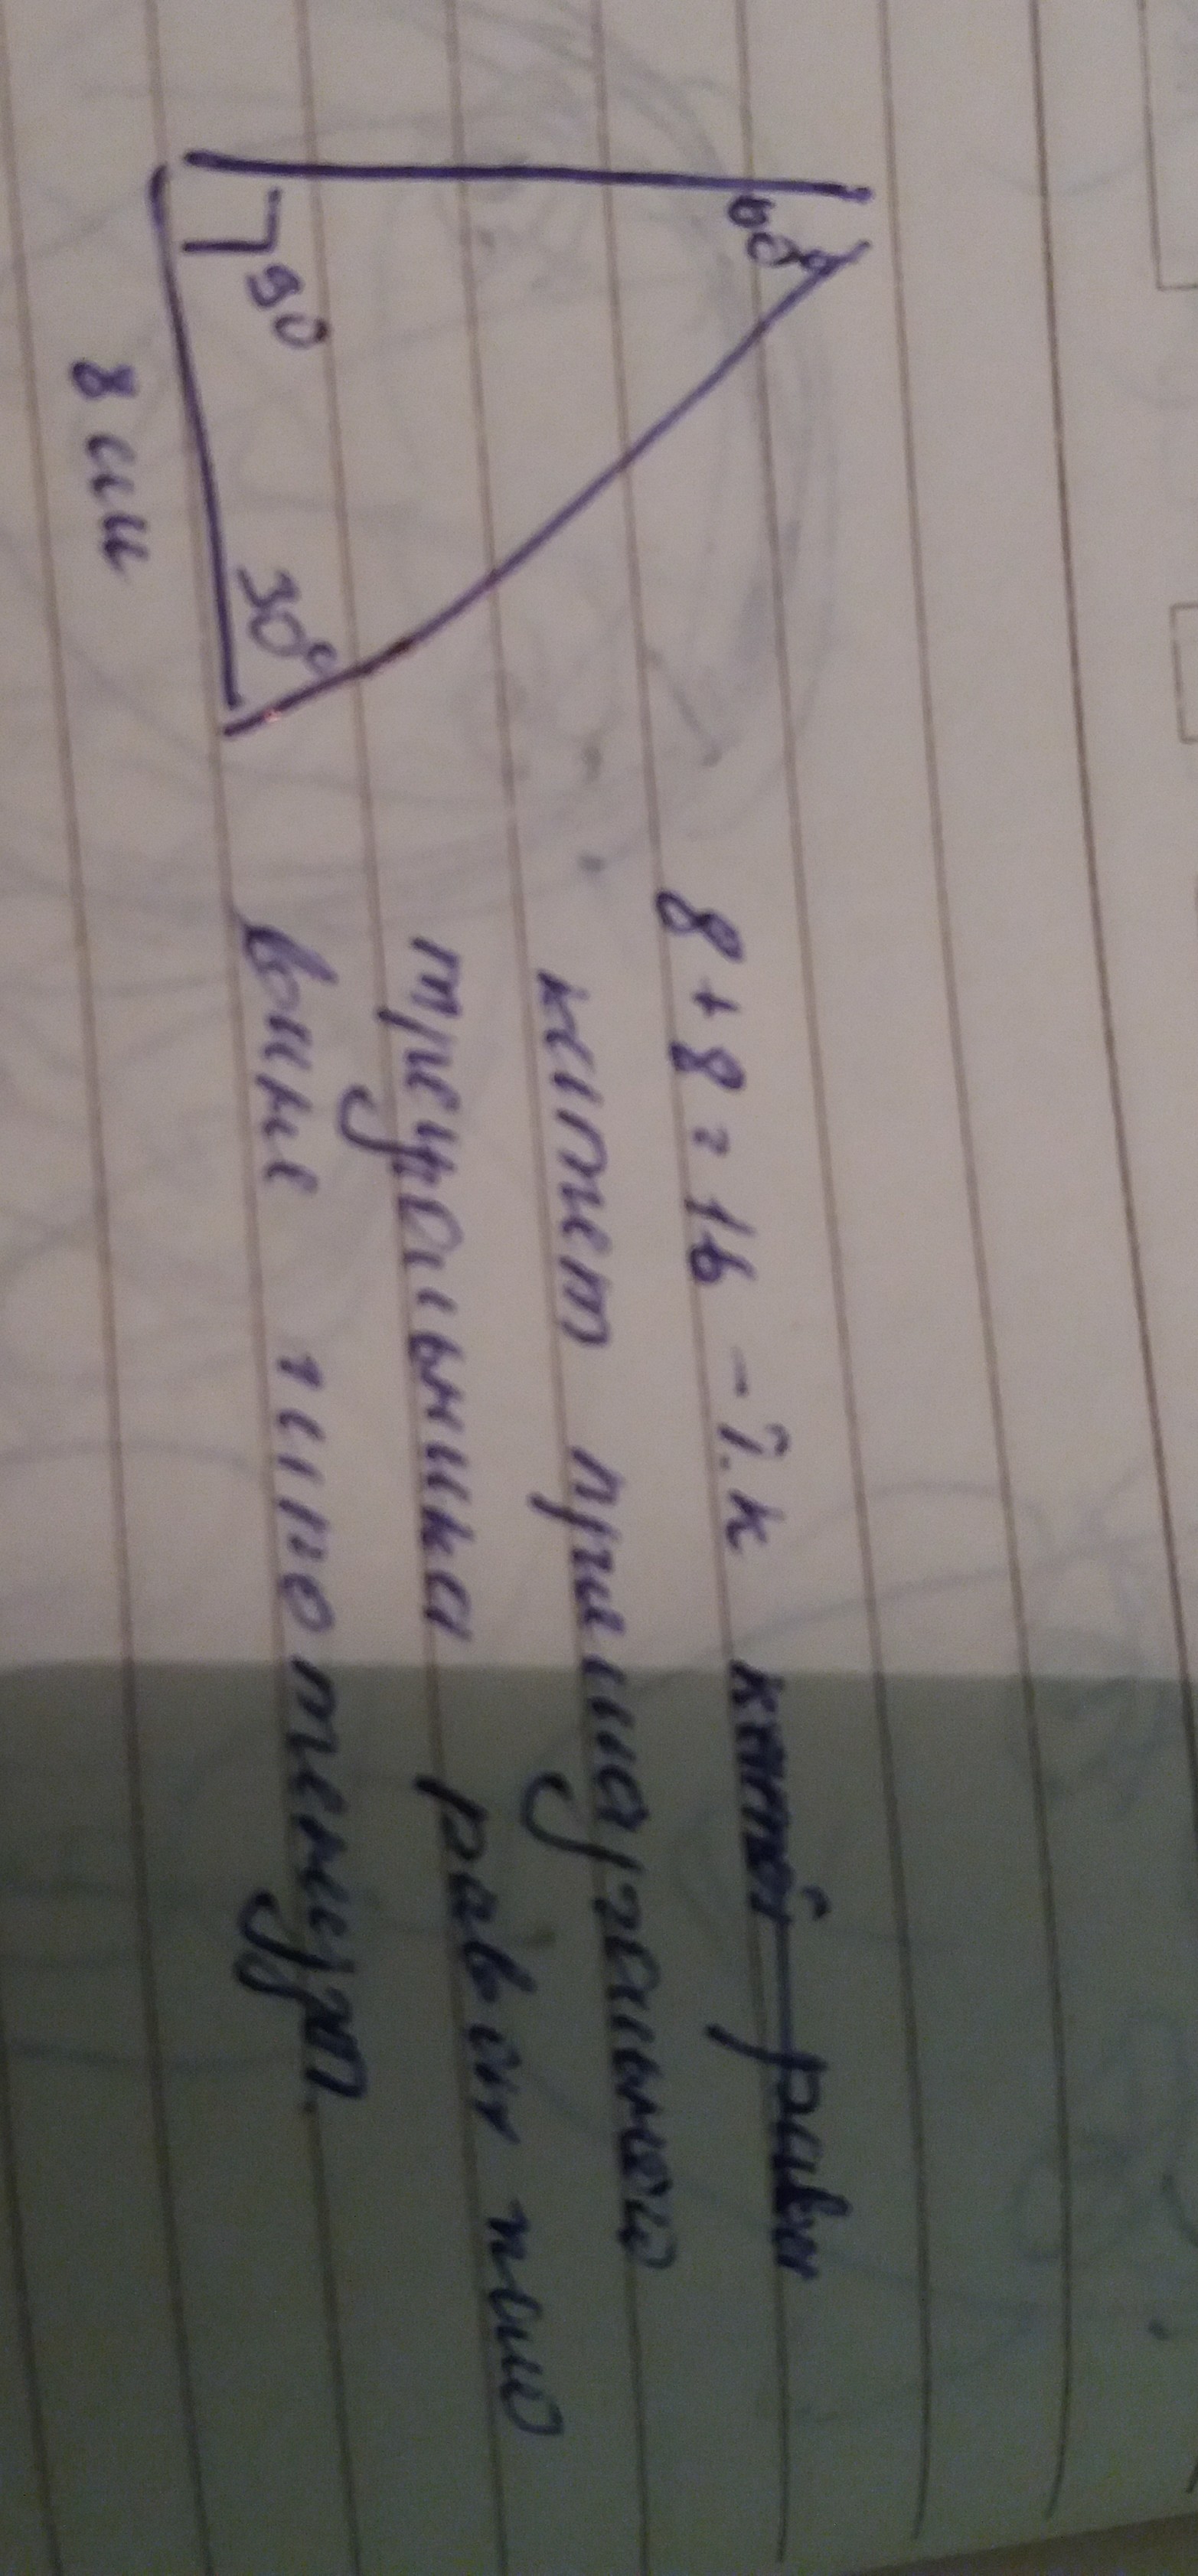 60°
90
30°
8 см
8 + 8 = 16 - т.к катет равен
катет прямоугольного
треугольника равен поло
вине гипотенузы.